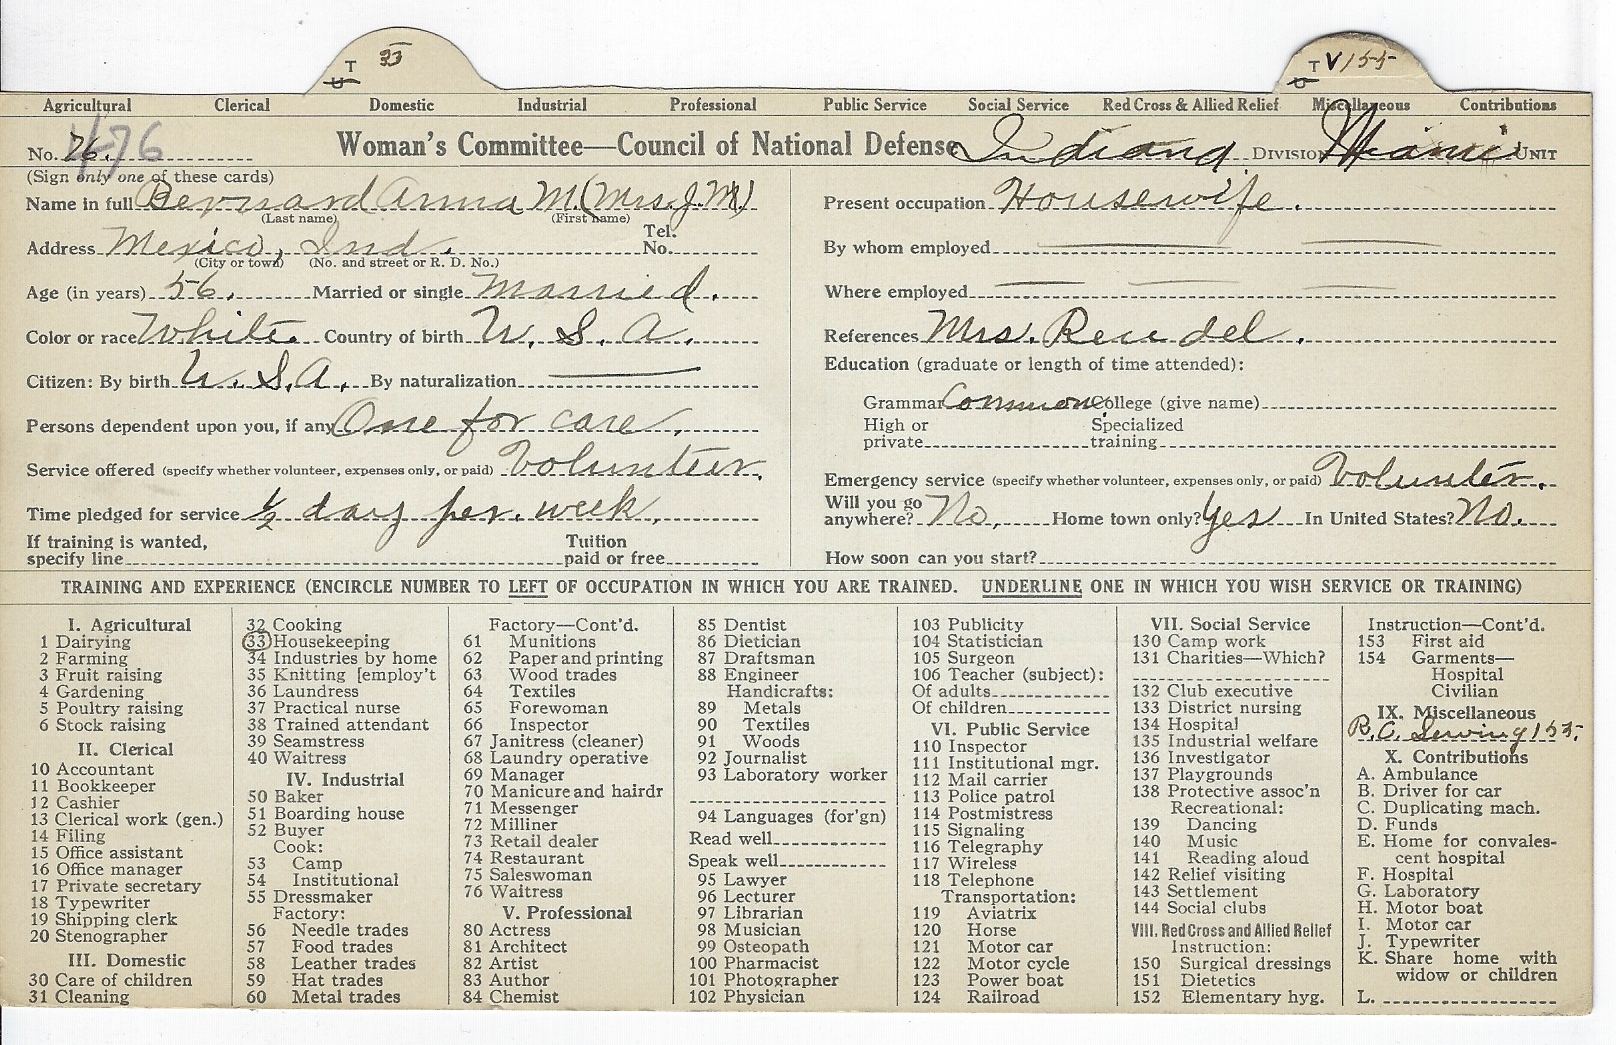 T 33
T V155
Agricultural Clerical Domestic Industrial Professional Public Service Social Service Red Cross & Allied Relief Miscellaneous Contributions
No. 76. 476 Woman's Committee—Council of National Defense Indiana DIVISION Miami UNIT
(Sign only one of these cards)
Name in full Bernard Anna M. (Mrs. J. M.)
(Last name) (First name)
Address Mexico, Ind. Tel. No.
(City or town) (No. and street or R. D. No.)
Age (in years) 56. Married or single Married.
Color or race White. Country of birth U. S. A.
Citizen: By birth U. S. A. By naturalization
Persons dependent upon you, if any One for care.
Service offered (specify whether volunteer, expenses only, or paid) Volunteer.
Time pledged for service 1/2 day per. week.
If training is wanted, specify line Tuition paid or free
Present occupation Housewife.
By whom employed
Where employed
References Mrs.
Education (graduate or length of time attended):
Grammar Common. College (give name)
High or private Specialized training
Emergency service (specify whether volunteer, expenses only, or paid) Volunter.
Will you go anywhere? No. Home town only? Yes In United States? No.
How soon can you start?
TRAINING AND EXPERIENCE (ENCIRCLE NUMBER TO LEFT OF OCCUPATION IN WHICH YOU ARE TRAINED. UNDERLINE ONE IN WHICH YOU WISH SERVICE OR TRAINING)
I. Agricultural
1 Dairying
2 Farming
3 Fruit raising
4 Gardening
5 Poultry raising
6 Stock raising
II. Clerical
10 Accountant
11 Bookkeeper
12 Cashier
13 Clerical work (gen.)
14 Filing
15 Office assistant
16 Office manager
17 Private secretary
18 Typewriter
19 Shipping clerk
20 Stenographer
III. Domestic
30 Care of children
31 Cleaning
32 Cooking
33 Housekeeping
34 Industries by home
35 Knitting [employ't
36 Laundress
37 Practical nurse
38 Trained attendant
39 Seamstress
40 Waitress
IV. Industrial
50 Baker
51 Boarding house
52 Buyer
Cook:
53 Camp
54 Institutional
55 Dressmaker
Factory:
56 Needle trades
57 Food trades
58 Leather trades
59 Hat trades
60 Metal trades
Factory—Cont'd.
61 Munitions
62 Paper and printing
63 Wood trades
64 Textiles
65 Forewoman
66 Inspector
67 Janitress (cleaner)
68 Laundry operative
69 Manager
70 Manicure and hairdr
71 Messenger
72 Milliner
73 Retail dealer
74 Restaurant
75 Saleswoman
76 Waitress
V. Professional
80 Actress
81 Architect
82 Artist
83 Author
84 Chemist
85 Dentist
86 Dietician
87 Draftsman
88 Engineer
Handicrafts:
89 Metals
90 Textiles
91 Woods
92 Journalist
93 Laboratory worker
94 Languages (for'gn)
Read well
Speak well
95 Lawyer
96 Lecturer
97 Librarian
98 Musician
99 Osteopath
100 Pharmacist
101 Photographer
102 Physician
103 Publicity
104 Statistician
105 Surgeon
106 Teacher (subject):
Of adults
Of children
VI. Public Service
110 Inspector
111 Institutional mgr.
112 Mail carrier
113 Police patrol
114 Postmistress
115 Signaling
116 Telegraphy
117 Wireless
118 Telephone
Transportation:
119 Aviatrix
120 Horse
121 Motor car
122 Motor cycle
123 Power boat
124 Railroad
VII. Social Service
130 Camp work
131 Charities—Which?
132 Club executive
133 District nursing
134 Hospital
135 Industrial welfare
136 Investigator
137 Playgrounds
138 Protective assoc'n
Recreational:
139 Dancing
140 Music
141 Reading aloud
142 Relief visiting
143 Settlement
144 Social clubs
VIII. Red Cross and Allied Relief
Instruction:
150 Surgical dressings
151 Dietetics
152 Elementary hyg.
Instruction—Cont'd.
153 First aid
154 Garments—
Hospital
Civilian
IX. Miscellaneous
R. C. Sewing 155.
X. Contributions
A. Ambulance
B. Driver for car
C. Duplicating mach.
D. Funds
E. Home for convales-
cent hospital
F. Hospital
G. Laboratory
H. Motor boat
I. Motor car
J. Typewriter
K. Share home with
widow or children
L.